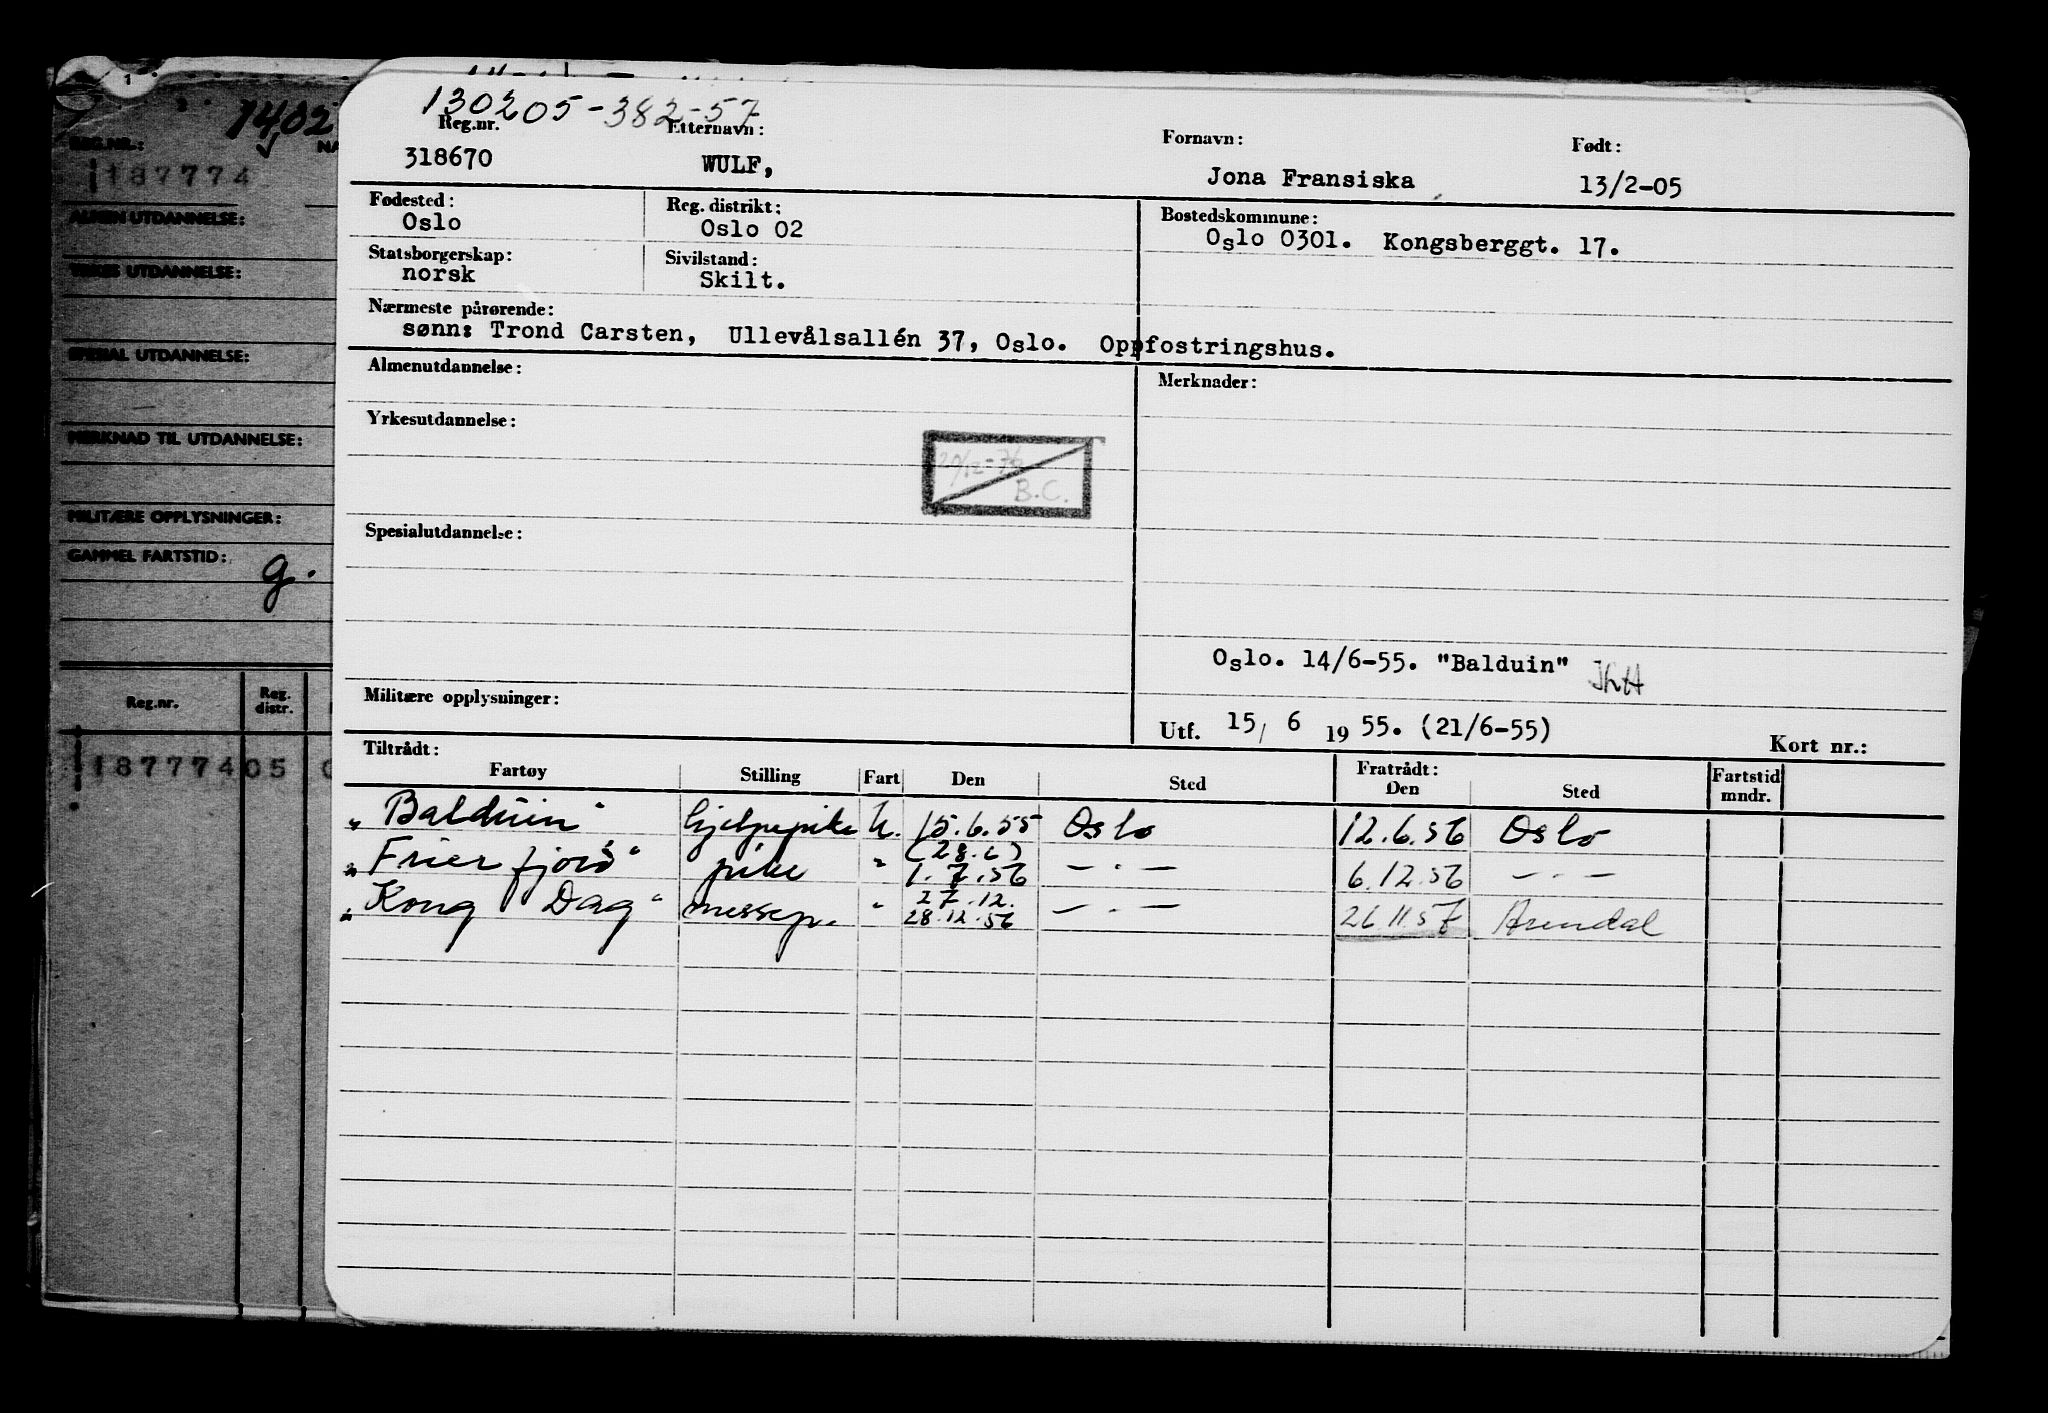 1
1402
REG.NR.:
187774
ALMEN UTDANNELSE:
YRKES UTDANNELSE:
SPESIAL UTDANNELSE:
MERKNAD TIL UTDANNELSE:
MILITÆRE OPPLYSNINGER:
GAMMEL FARTSTID:
g.
Reg.nr. Reg. distr.
187774 05
130205-382-57
Reg.nr. Etternavn: Fornavn: Født:
318670 WULF, Jona Fransiska 13/2-05
Fødested: Reg. distrikt: Bostedskommune:
Oslo Oslo 02 Oslo 0301. Kongsberggt. 17.
Statsborgerskap: Sivilstand:
norsk Skilt.
Nærmeste pårørende:
sønn: Trond Carsten, Ullevålsallén 37, Oslo. Oppfostringshus.
Almenutdannelse: Merknader:
Yrkesutdannelse:
B.C.
Spesialutdannelse:
Oslo. 14/6-55. "Balduin"
Militære opplysninger:
Utf. 15/ 6 1955. (21/6-55)
Kort nr.:
Tiltrådt: Fratrådt:
Fartøy Stilling Fart Den Sted Den Sted Fartstid mndr.
"Balduin" hjelpepike U. 15.6.55 Oslo 12.6.56 Oslo
(28.6)
"Frierfjord" pike " 1.7.56 — · — 6.12.56 — · —
27.12.
"Kong Dag" messep. " 28.12.56 — · — 26.11.57 Arendal